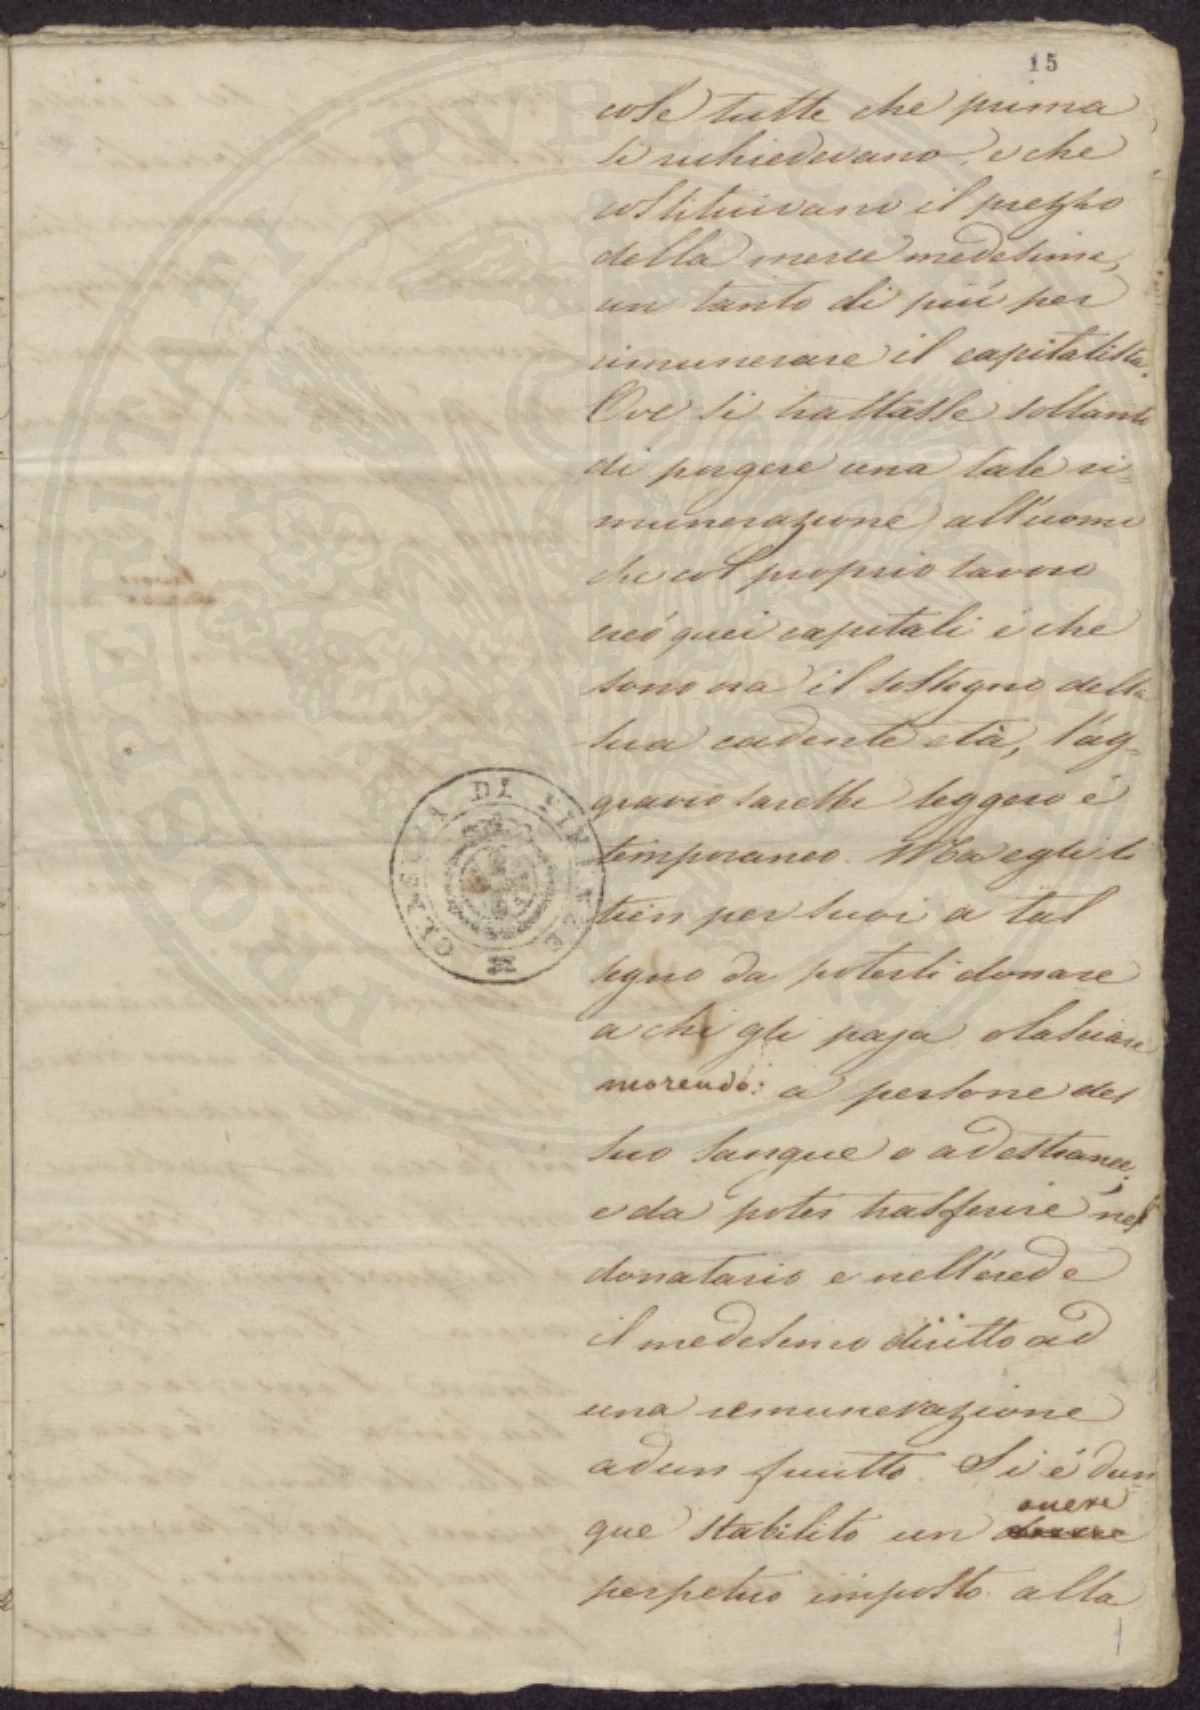 15
cose tutte che prima
si richiedevano e che
costituivano il prezzo
della merce medesima,
un tanto di più per
rimunerare il capitalista.
Ove si trattasse soltanto
di porgere una tale ri=
munerazione all'uomo
che col proprio lavoro
creó quei capitali é che
sono ora il sostegno della
sua cadente età, l'ag-
gravio sarebbe leggero é
temporaneo. Ma egli li
tien per suoi a tal
segno da poterli donare
a chi gli paja o lasciare
morendo: a persone del
suo sangue o ad estranee;
e da poter trasferire nel
donatario e nell'erede
il medesimo diritto ad
una remunerazione
ad un frutto. Si é dun
que stabilito un
onere
perpetuo imposto alla
PROSPERITATI PVBLICAE
CENSURA DI FIRENZE